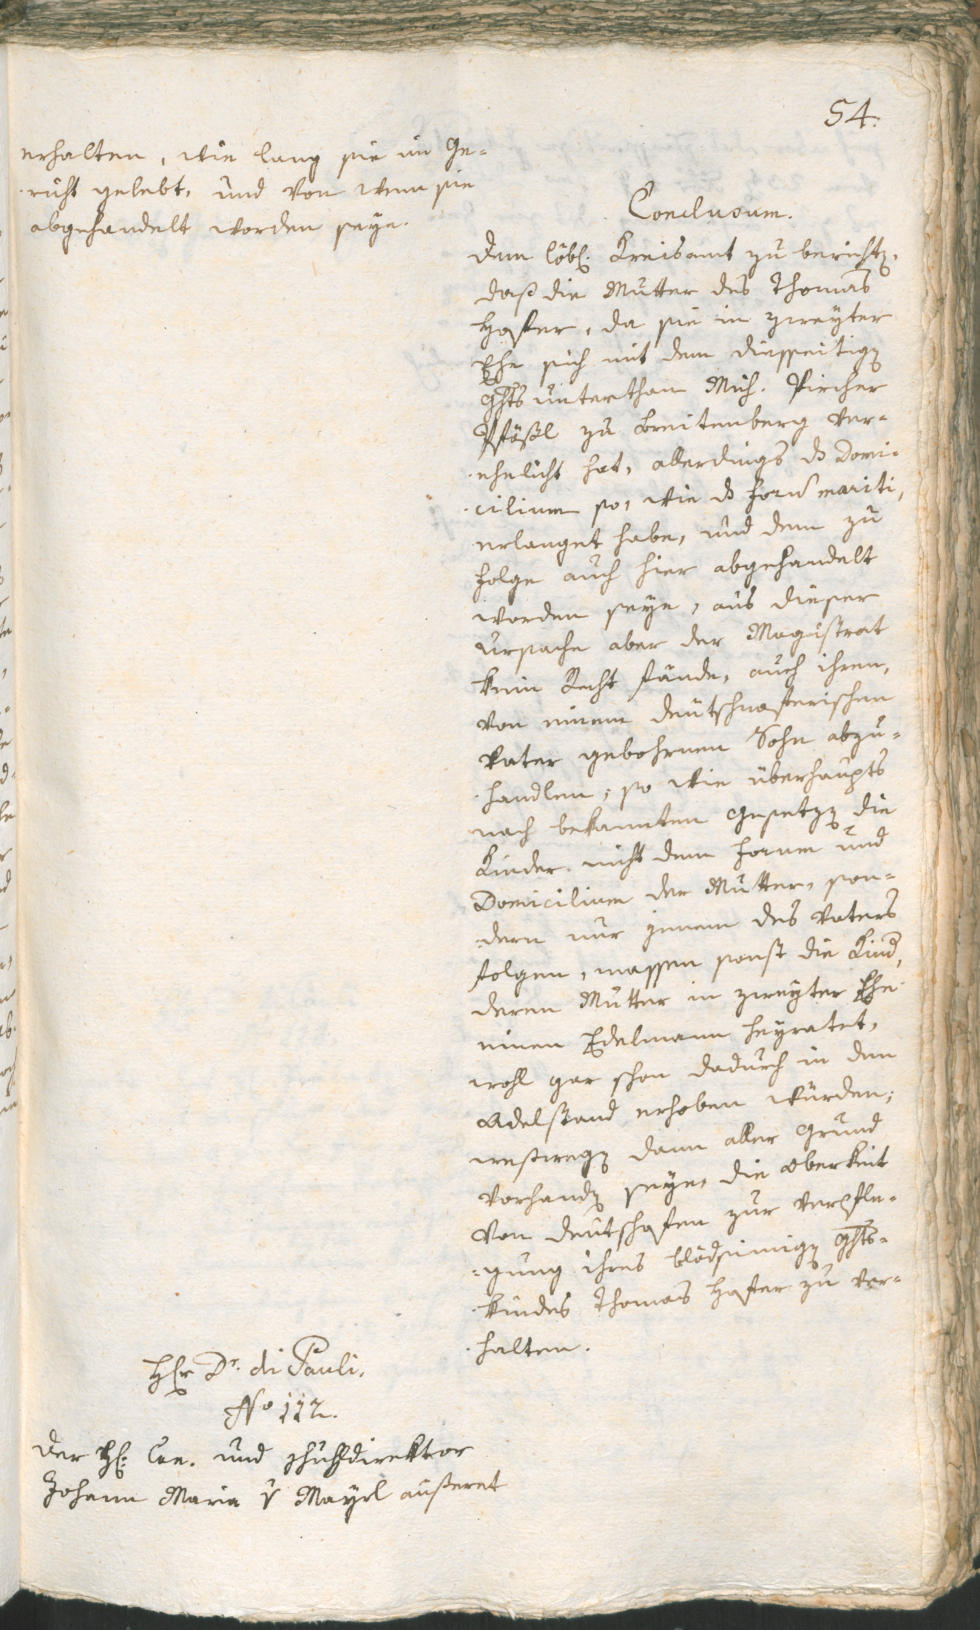 54.
erhalten, wie lang sie im Ge-
richt gelebt, und von wem sie
abgehandelt worden seye.
Conclusum.
Dem löbl. Kreisamt zu berichten,
daß die Mutter des Thomas
Hafner, da sie in zweyter
Ehe sich mit dem diesseitigen
Ghts unterthan Mich. Pircher
Pföstl zu Breitenberg ver-
ehelicht hat, allerdings ds Domi-
cilium so, wie ds forum mariti,
erlanget habe, und dem zu
folge auch hier abgehandelt
worden seye, aus dieser
Ursache aber der Magistrat
kein Recht fände, auch ihren,
von einem deutschnofnerischen
Vater gebohrnen Sohn abzu-
handlen, so wie überhaupts
nach bekannten Gesetzen die
Kinder nicht dem forum und
Domicilium der Mutter, son-
dern nur jenem des Vaters
folgen, massen sonst die Kind,
deren Mutter in zweyter Ehe
einen Edelmann heyratet,
wohl gar schon dadurch in den
Adelstand erhoben würden;
weßwegen dann aller Grund
vorhanden seye, die Oberkeit
von Deutschofen zur Verpfle-
gung ihres blödsinnigen Ghts-
kindes Thomas Hafner zu ver-
halten.
Hr Dr. di Pauli.
No 112.
Der H: und
Johann Maria v Mayrl äußeret